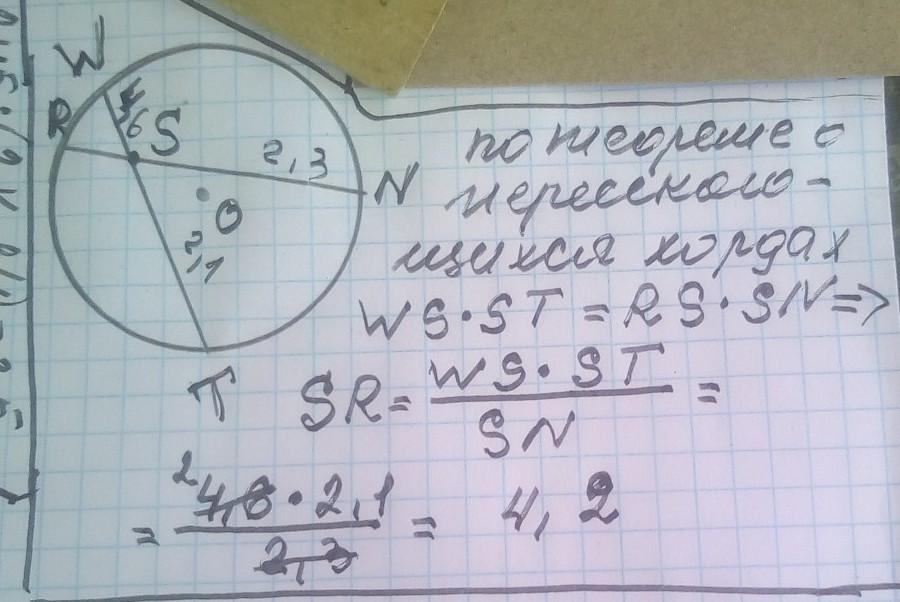 W
R
4,6
S
2,3
N
O
2,1
T
по теореме о
пересекаю-
щихся хордах
WS·ST = RS·SN =>
SR = WS·ST / SN =
= 2 4,6·2,1 / 2,3 = 4,2